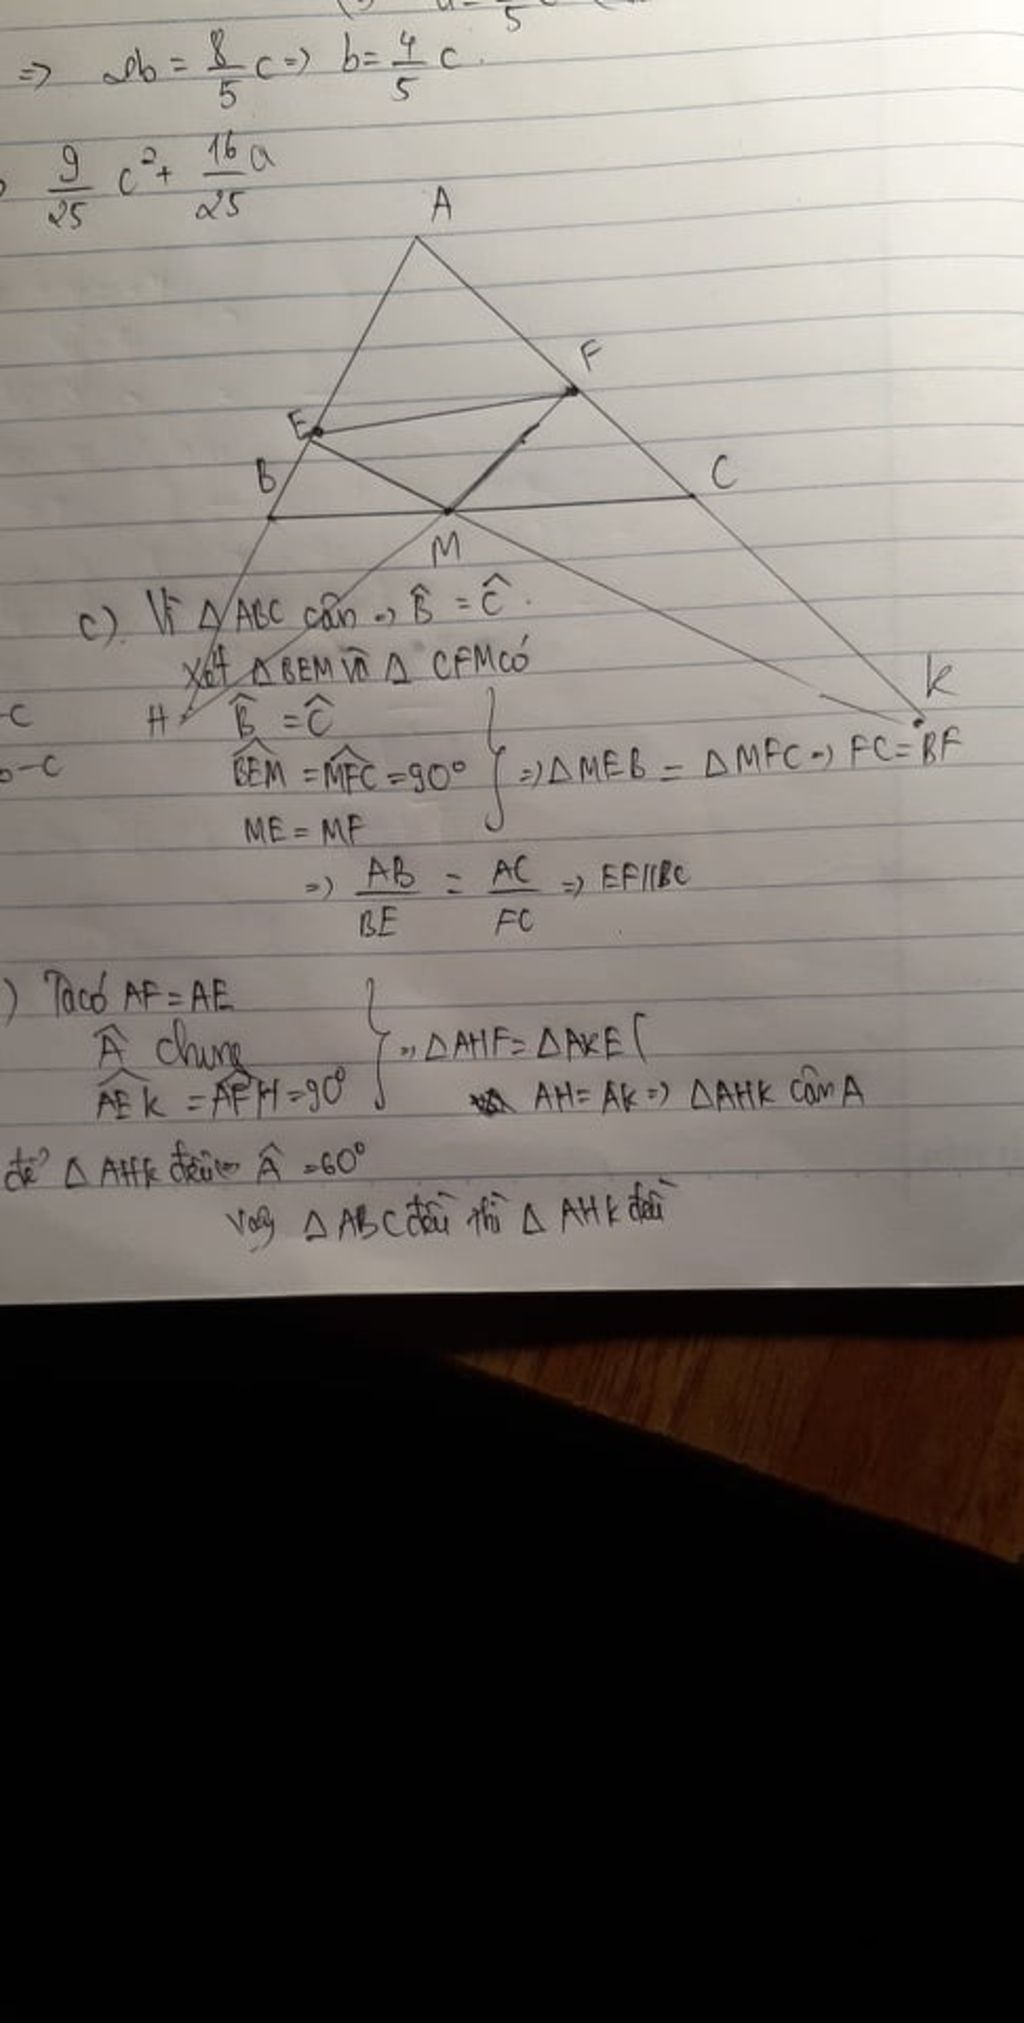 5
=> 2b = 8/5 c => b = 4/5 c.
9/25 c² + 16/25 a
A
F
E
B
C
M
c). Vì △ABC cân => B̂ = Ĉ.
Xét △BEM và △ CFM có
K
H
-C
B̂ = Ĉ
-C
BEM = MFC = 90° => △MEB = △MFC => FC = BF
ME = MF
=> AB/BE = AC/FC => EF//BC
) Ta có AF = AE
Â chung => △AHF = △AKE (
AEK = AFH = 90°
AH = AK => △AHK cân A
để △ AHK đều Â = 60°
Vậy △ ABC đều thì △ AHK đều